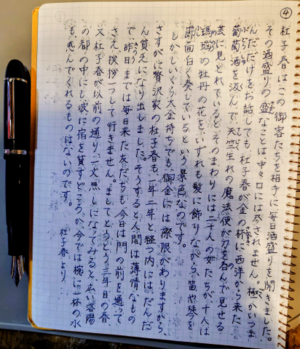 ④
杜子春はこの御客たちを相手に毎日酒盛りを開きました。
その酒盛りの盛なことは中々口には尽されません。極かいつま
んだだけをお話しても、杜子春が金の杯に西洋から来た
葡萄酒を汲んで、天竺生れの魔法使が刀を呑んで見せる
芸に見とれていると、そのまわりには二十人の女たちが、十人は
瑪瑙の牡丹の花を、いずれも髪に飾りながら、笛や琴を
節面白く奏しているという景色なのです。
しかしいくら大金持でも、御金には際限がありますから、
さすがに贅沢家の杜子春も、一年二年と経つ内には、だんだ
ん貧乏になり出しました。そうすると人間は薄情なもの
で、昨日までは毎日来た友だちも、今日は門の前を通って
さえ、挨拶一つして行きません。ましてとうとう三年目の春
又杜子春が以前の通り、一文無しになって見ると、広い洛陽
の都の中にも、彼に宿を貸すどころか、今では椀に一杯の水
も、恵んでくれるものはないのです。
杜子春より